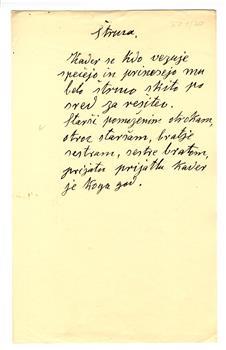 Štruca.
Kader se kdo veguje
spečejo in prinesejo mu
belo štruco skito po
sred za rešitev.
starši pomoženim otrokam,
otroc staršam, bratje
sestram, sestre bratom,
prijatu prijatlu kader
je koga god.